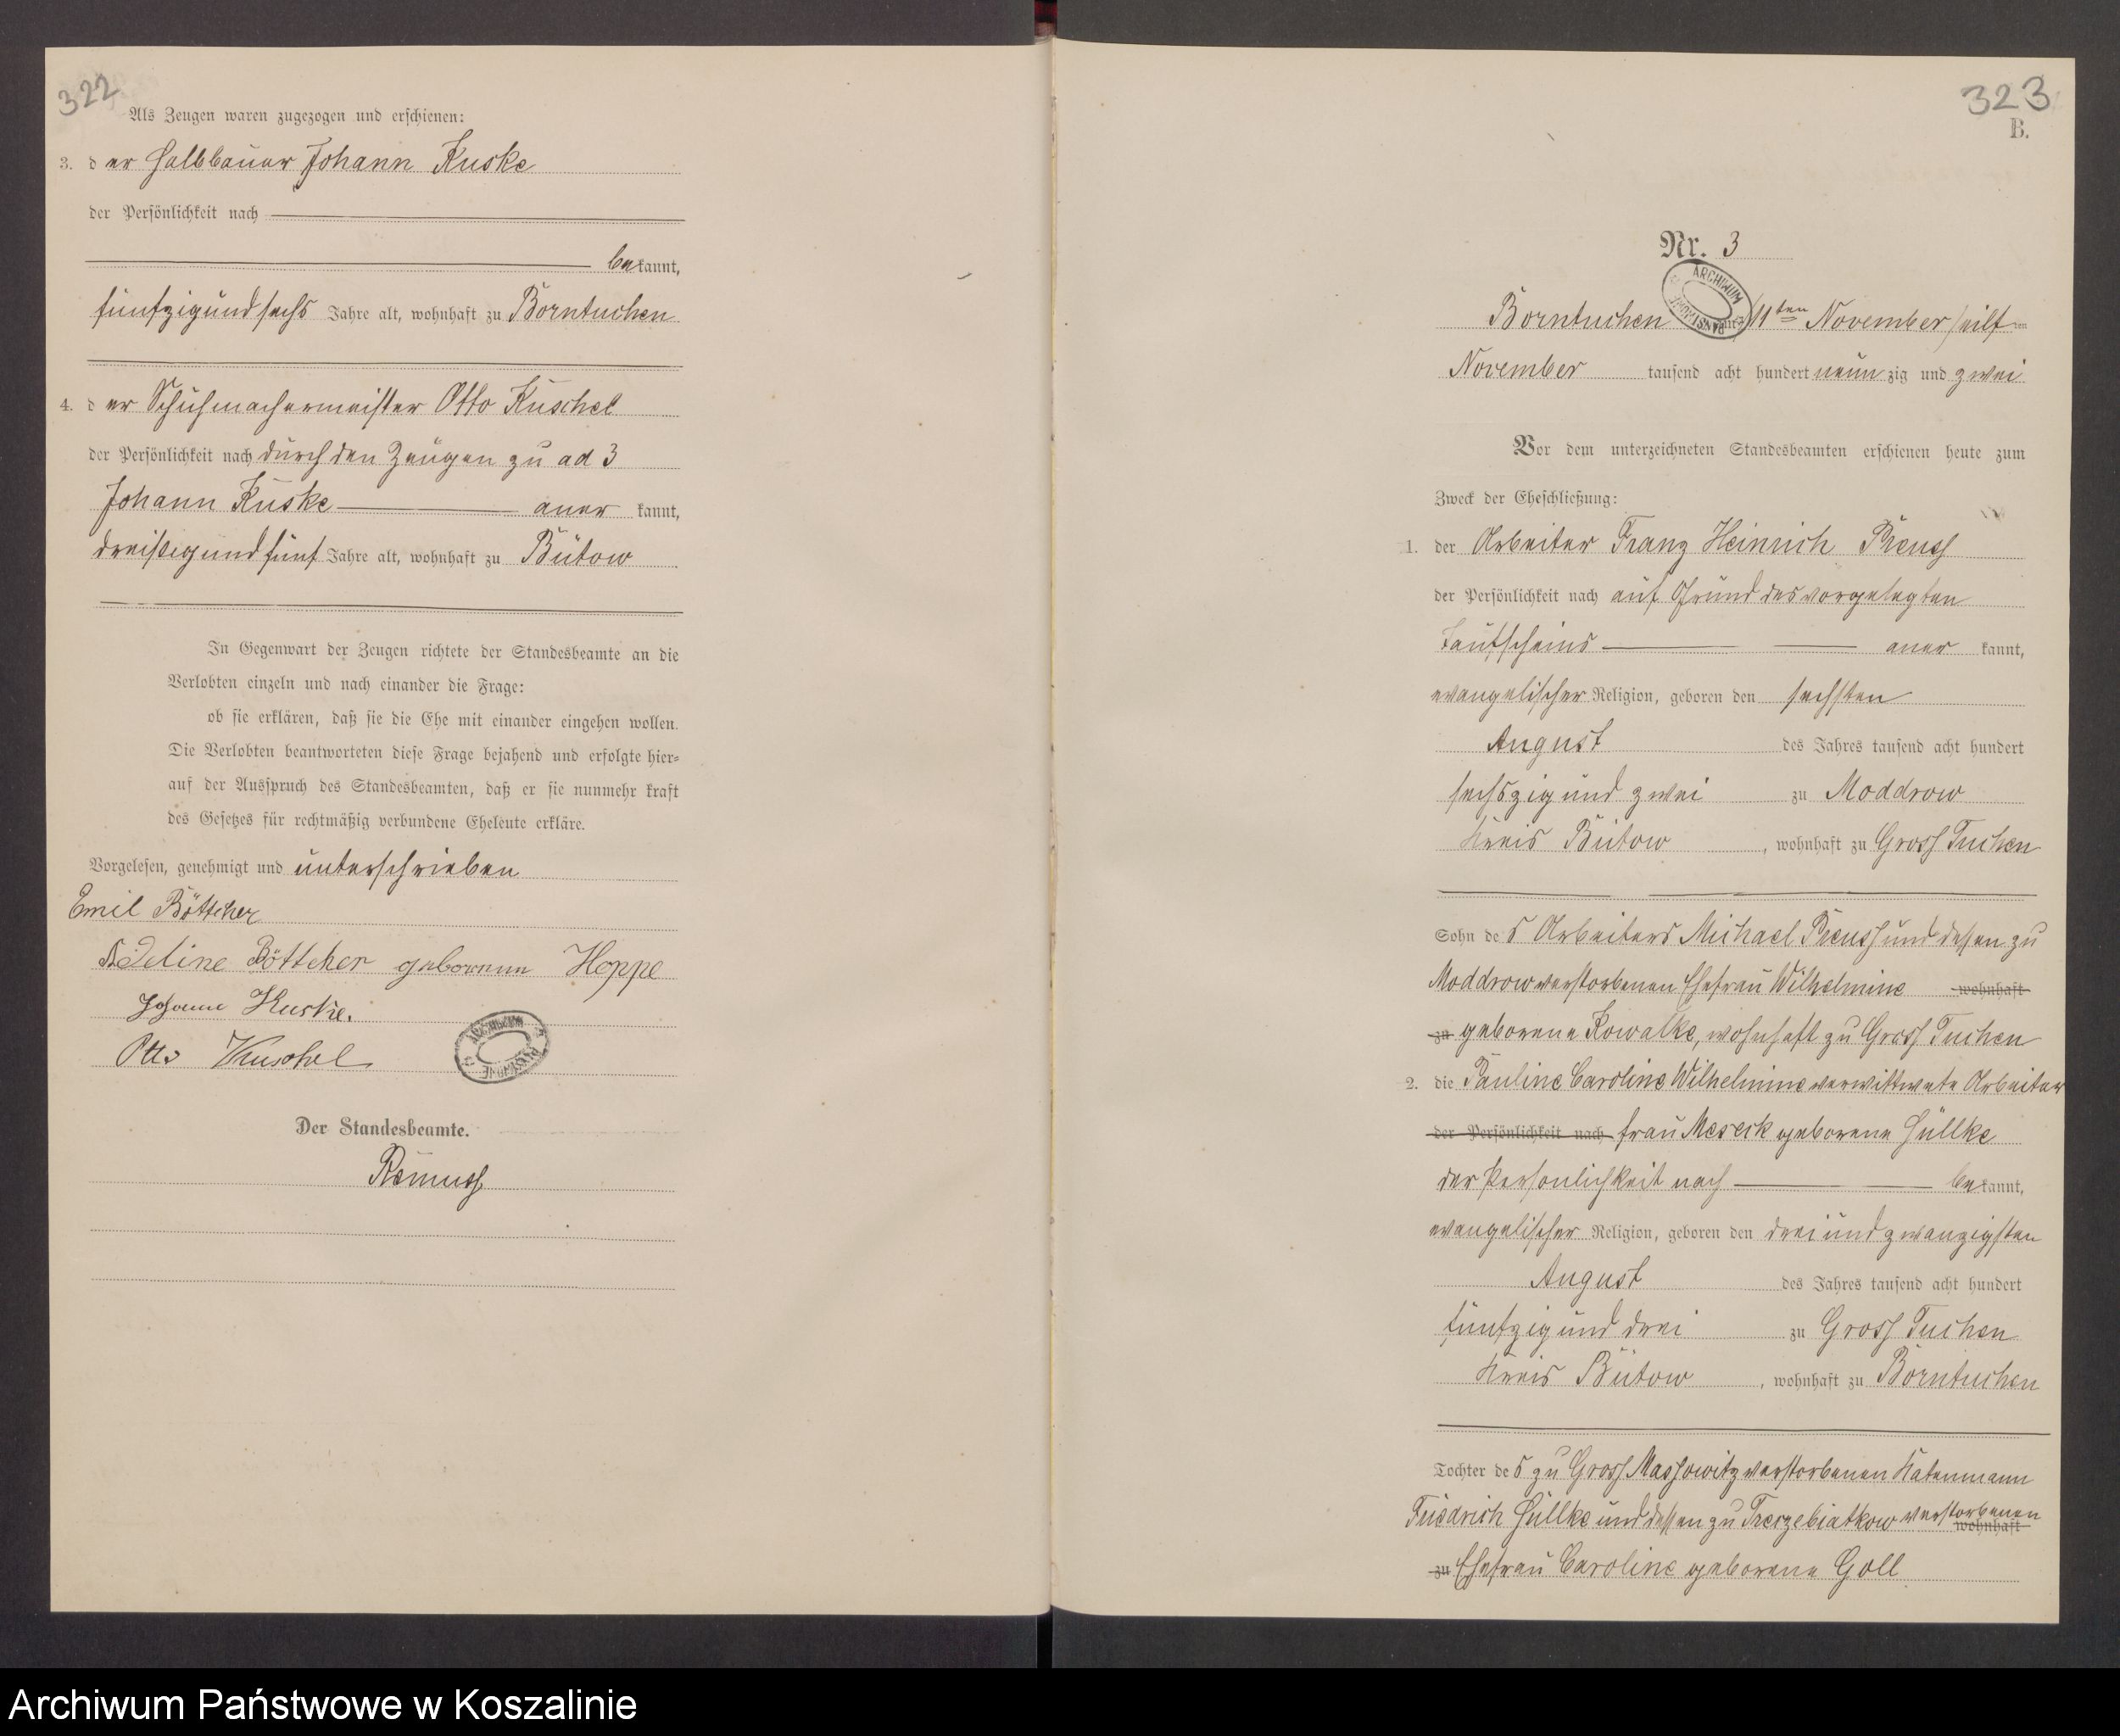 322
Als Zeugen waren zugezogen und erschienen:
3. der Halbbauer Johann Kuske
der Persönlichkeit nach
bekannt,
fünfzigundsechs Jahre alt, wohnhaft zu Borntuchen
4. der Schuhmachermeister Otto Kuschel
der Persönlichkeit nach durch den Zeugen zu ad 3
Johann Kuske anerkannt,
dreißigundfünf Jahre alt, wohnhaft zu Bütow
In Gegenwart der Zeugen richtete der Standesbeamte an die
Verlobten einzeln und nach einander die Frage:
ob sie erklären, daß sie die Ehe mit einander eingehen wollen.
Die Verlobten beantworteten diese Frage bejahend und erfolgte hier-
auf der Ausspruch des Standesbeamten, daß er sie nunmehr kraft
des Gesetzes für rechtmäßig verbundene Eheleute erkläre.
Vorgelesen, genehmigt und unterschrieben
Emil Böttcher
Adeline Böttcher geborene Hoppe
Johann Kuske.
Otto Kuschel
ARCHIWUM
Der Standesbeamte.
Remuss
323
B.
Nr. 3
ARCHIWUM
Borntuchen /11ten November/ eilf ten
November tausend acht hundert neunzig und zwei
Vor dem unterzeichneten Standesbeamten erschienen heute zum
Zweck der Eheschließung:
1. der Arbeiter Franz Heinrich Preuss
der Persönlichkeit nach auf Grund des vorgelegten
Taufscheins anerkannt,
evangelischer Religion, geboren den sechsten
August des Jahres tausend acht hundert
sechszig und zwei zu Moddrow
Kreis Bütow, wohnhaft zu Gross Tuchen
Sohn des Arbeiters Michael Preuss und dessen zu
Moddrow verstorbenen Ehefrau Wilhelmine wohnhaft
zu geborene Kowalke, wohnhaft zu Gross Tuchen
2. die Pauline Caroline Wilhelmine verwittwete Arbeiter
der Persönlichkeit nach frau Meseck geborene Hüllke
der Persönlichkeit nach bekannt,
evangelischer Religion, geboren den drei und zwanzigsten
August des Jahres tausend acht hundert
fünfzig und drei zu Gross Tuchen
Kreis Bütow, wohnhaft zu Borntuchen
Tochter des zu Gross Massowitz verstorbenen Katenmann
Friedrich Hüllke und dessen zu Treczebiatkow verstorbenen
wohnhaft
zu Ehefrau Caroline geborene Goll
Archiwum Państwowe w Koszalinie